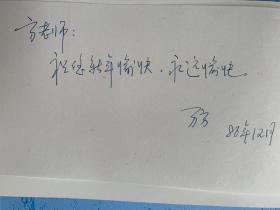 方老师：
祝您新年愉快，永远愉快。
万方
86年12月